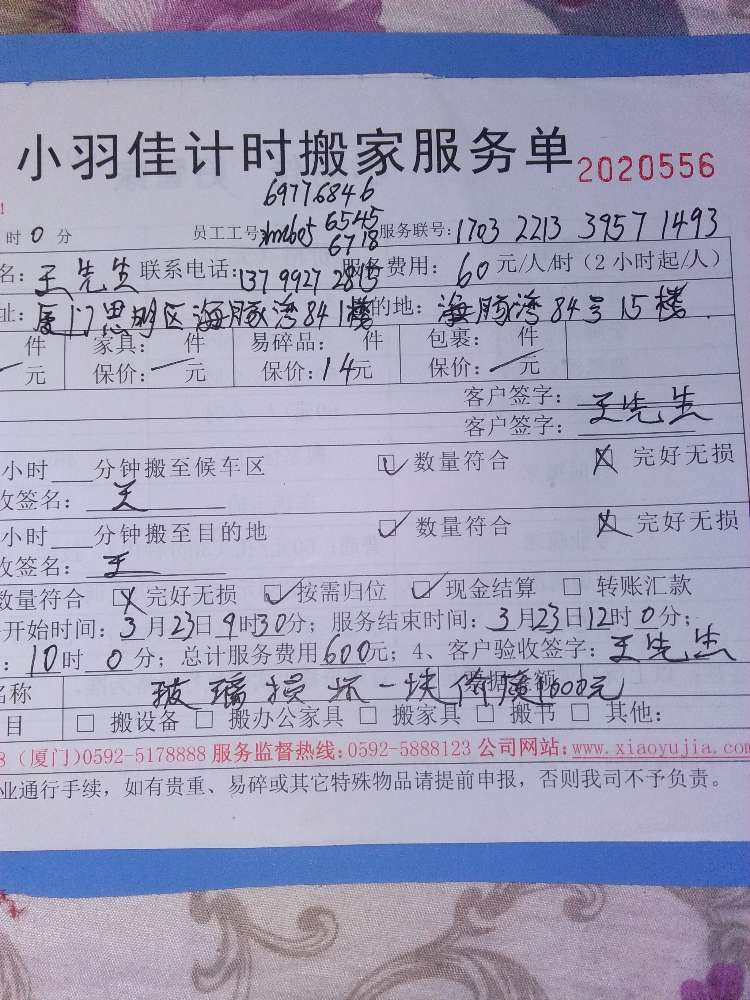 小羽佳计时搬家服务单 2020556
69776846
6545
时 0 分 员工工号: 6718 服务联号: 1703 2213 3957 1493
名: 王先生 联系电话: 137 9927 2815 服务费用: 60 元/人/时(2小时起/人)
址: 厦门思明区海豚湾84 1楼 的地: 海豚湾84号15楼
件 家具: 件 易碎品: 件 包裹: 件
元 保价: 元 保价: 14元 保价: 元
客户签字:
客户签字: 王先生
小时 分钟搬至候车区 ☑ 数量符合 ☒ 完好无损
收签名: 王
小时 分钟搬至目的地 ☑ 数量符合 ☒ 完好无损
收签名: 王
数量符合 ☒ 完好无损 ☑ 按需归位 ☑ 现金结算 □ 转账汇款
开始时间: 3月23日9时30分; 服务结束时间: 3月23日12时0分;
: 10时 0分; 总计服务费用600元; 4、客户验收签字: 王先生
名称 玻璃损坏一块 额 600元
目 □ 搬设备 □ 搬办公家具 □ 搬家具 □ 搬书 □ 其他:
8 (厦门)0592-5178888 服务监督热线:0592-5888123 公司网站:www.xiaoyujia.com
业通行手续,如有贵重、易碎或其它特殊物品请提前申报,否则我司不予负责。